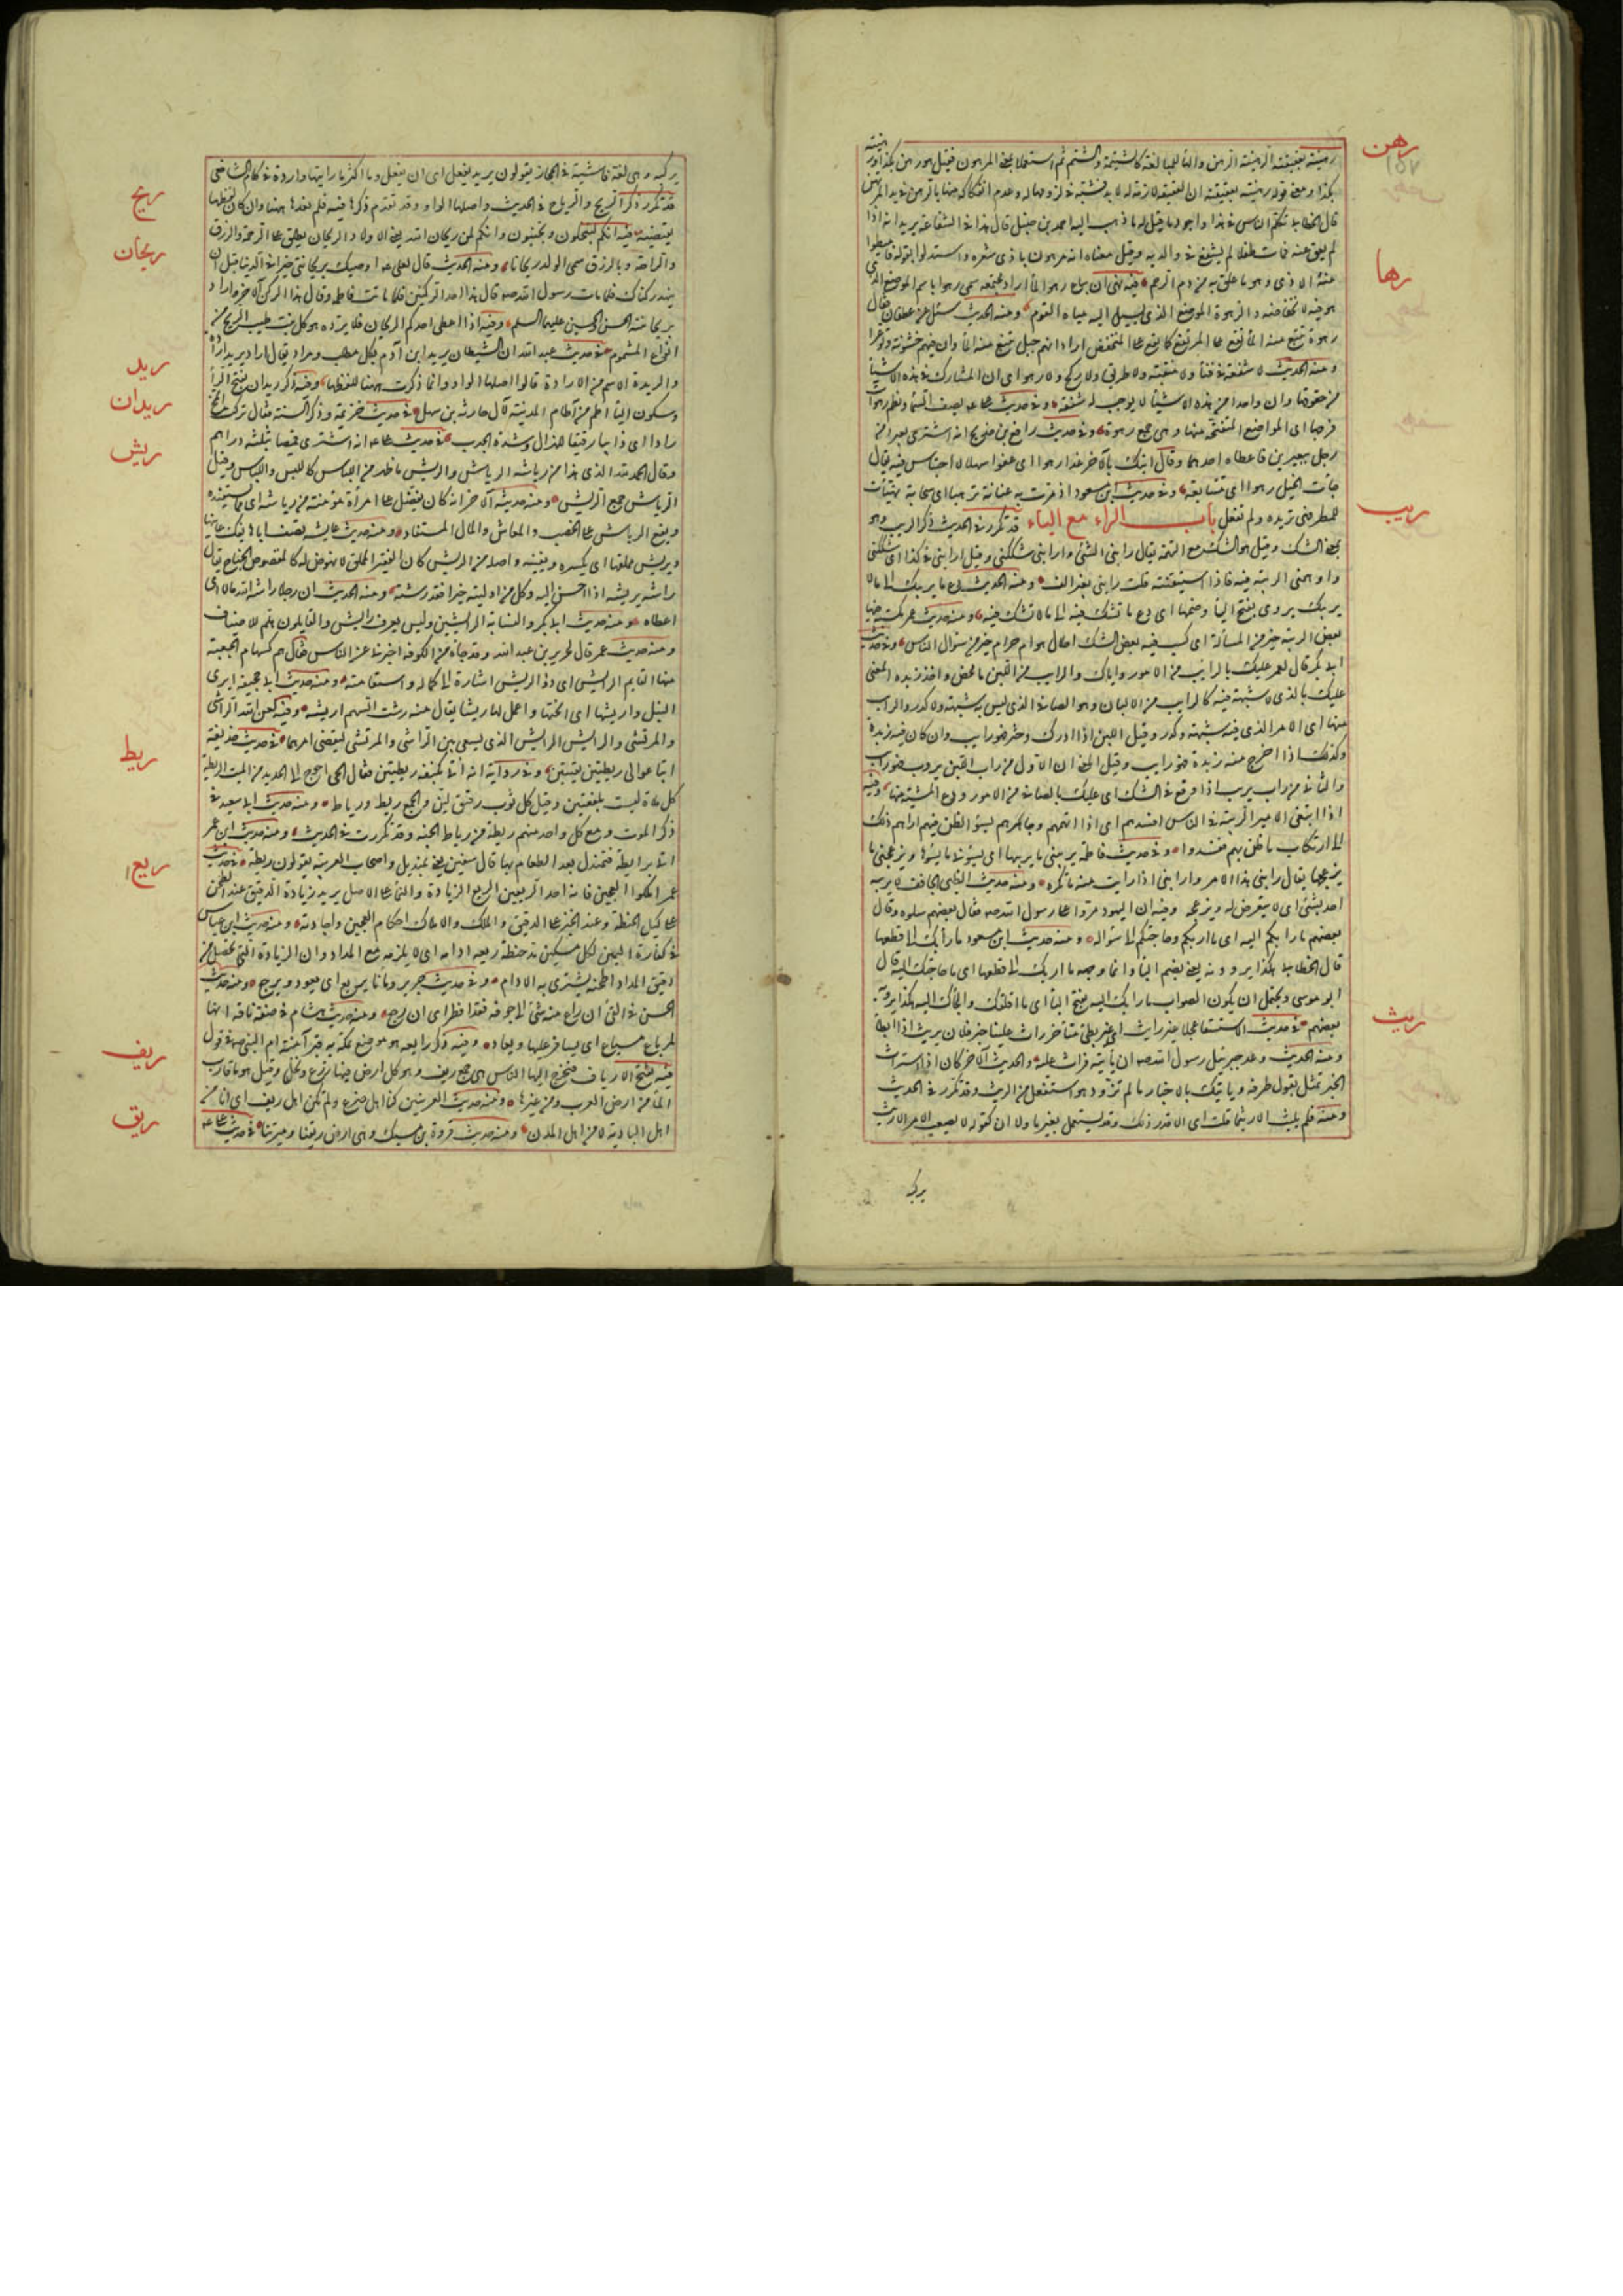 رهن
رهينة بعقيقته الرهينة الرهن والهاء للمبالغة كالشتيمة والشتم ثم استعملا بمعنى المرهون فقيل هو رهن بكذا ورهينة
بكذا ومعنى قوله رهينة بعقيقته ان العقيقة لازمة له لا بد منه فشبه في لزومها له وعدم انفكاكه منها بالرهن في يد المرتهن
قال الخطابي تكلم الناس في هذا واجود ما قيل فيه ما ذهب اليه احمد بن حنبل قال هذا في الشفاعة يريد انه اذا
لم يعق عنه فمات طفلا لم يشفع في والديه وقيل معناه انه مرهون باذى شعره واستدلوا بقوله فاميطوا
رها
عنه الاذى وهو ما علق به من دم الرحم فيه نهى ان يباع رهو الماء اراد مجتمعه سمي رهوا باسم الموضع الذي
هو فيه لانخفاضه والرهوة الموضع الذي يسيل اليه مياه القوم ومنه الحديث سئل عن غطفان فقال
رهوة تنبع منه الماء تقع على المرتفع كما تقع على المنخفض اراد انهم جبل ينبع منه الماء وان فيهم خشونة وتوعرا
ومنه الحديث لا شفعة في فناء ولا منقبة ولا طريق ولا ركح ولا رهو اي ان المشارك في هذه الاشياء
من حقوقها وان واحدا من هذه الاشياء لا يوجب له شفعة وفي حديث علي يصف السماء ونظم رهوات
فرجها اي المواضع المتفتحة منها وهي جمع رهوة وفي حديث رافع بن خديج انه اشترى بعيرا من
رجل ببعيرين فاعطاه احدهما وقال اتيك بالآخر غدا رهوا اي عفوا سهلا لا احتباس فيه يقال
جاءت الخيل رهوا اي متتابعة وفي حديث ابن مسعود اذ مرت به عنانة ترهيا اي سحابة تهيأت
ريب
للمطر فهي تريده ولم تفعل باب الراء مع الياء قد تكرر في الحديث ذكر الريب وهو
بمعنى الشك وقيل هو الشك مع التهمة يقال رابني الشئ وارابني شككني وقيل ارابني في كذا اي شككني
واوهمني الريبة فيه فاذا استيقنته قلت رابني بغير الف ومنه الحديث دع ما يريبك الى ما لا
يريبك يروى بفتح الياء وضمها اي دع ما تشك فيه الى ما لا تشك فيه ومنه حديث عمر مكسبة فيها
بعض الريبة خير من المسألة اي كسب فيه بعض الشك احلال هو ام حرام خير من سؤال الناس وفي حديث
ابي بكر قال لعمر عليك بالرايب من الامور واياك والرايب من اللبن ما محض واخذ زبده المعنى
عليك بالذي لا شبهة فيه كالرايب من الالبان وهو الصافي الذي ليس فيه شبهة ولا كدر والرايب
منها اي الامر الذي فيه شبهة وكدر وقيل اللبن اذا ادرك وخثر فهو رايب وان كان فيه زبده
وكذلك اذا اخرج منه زبده فهو رايب وقيل المعنى ان الاول من راب اللبن يروب فهو رايب
والثاني من راب يريب اذا وقع في الشك اي عليك بالصافي من الامور ودع المشتبه منها وفيه
اذا ابتغى الامير الريبة في الناس افسدهم اي اذا اتهمهم وجاهرهم بسوء الظن فيهم اداهم ذلك
الى ارتكاب ما ظن بهم ففسدوا وفي حديث فاطمة يريبني ما يريبها اي يسوءني ما يسوءها ويزعجني ما
يزعجها يقال رابني هذا الامر وارابني اذا رايت منه ما تكره ومنه حديث الظبي الحاقف لا يريبه
احد بشئ اي لا يتعرض له ويزعجه وفيه ان اليهود مروا على رسول الله صم فقال بعضهم سلوه وقال
بعضهم ما رابكم اليه اي ما اربكم وحاجتكم الى سؤاله ومنه حديث ابن مسعود ما رابك الى قطعها
قال الخطابي هكذا يروونه يعني بضم الباء وانما وجهه ما اربك الى قطعها اي ما حاجتك اليه قال
ابو موسى ويحتمل ان يكون الصواب ما رابك اليه بفتح الباء اي ما اقلقك والجأك اليه هكذا يرويه
ريث
بعضهم في حديث الاستسقاء عجلا غير رايث اي غير بطئ متأخر راث علينا خبر فلان يريث اذا ابطأ
ومنه الحديث وعد جبريل رسول الله صم ان يأتيه فراث عليه والحديث الآخر كان اذا استراث
الخبر تمثل بقول طرفة ويأتيك بالاخبار من لم تزود هو استفعل من الريث وقد تكرر في الحديث
ومنه فلم يلبث الا ريثما قلت اي الا قدر ذلك وقد يستعمل بغير ما ولا ان كقوله لا يصعب الامر الا ريث
يركبه
يركبه وهي لغة فاشية في الحجاز يقولون يريد يفعل اي ان يفعل وما اكثر ما رايتها واردة في كلام الشافعي
ريح
قد تكرر ذكر الريح والرياح في الحديث واصلها الواو وقد تقدم ذكرها فيه فلم نعدها ههنا وان كان لفظها
ريحان
يقتضيه فيه انكم لتبخلون وتجبنون وانكم لمن ريحان الله يعني الاولاد الريحان يطلق على الرحمة والرزق
والراحة وبالرزق سمي الولد ريحانا ومنه الحديث قال لعلي اوصيك بريحانتي خيرا في الدنيا قبل ان
ينهد ركناك فلما مات رسول الله صم قال هذا احد الركنين فلما ماتت فاطمة وقال هذا الركن الآخر واراد
بريحانتيه الحسن والحسين عليهما السلم وفيه اذا اعطي احدكم الريحان فلا يرده هو كل نبت طيب الريح من
ريد
انواع المشموم في حديث عبد الله ان الشيطان يريد ابن آدم بكل مطلب ومراد يقال اراد يريد ارادة
ريدان
والريدة الاسم من الارادة قالوا اصلها الواو وانما ذكرت ههنا للفظها وفيه ذكر ريدان بفتح الراء
وسكون الياء اطم من آطام المدينة لآل حارثة بن سهل في حديث خزيمة وذكر السنة فقال تركت المخ
ريش
رارا اي ذائبا رقيقا للهزال وشدة الجدب في حديث علي انه اشترى قميصا بثلثة دراهم
وقال الحمد لله الذي هذا من رياشه الرياش والريش ما ظهر من اللباس كاللبس واللباس وقيل
الرياش جمع الريش ومنه حديثه الآخر انه كان يفضل على امرأة مؤمنة من رياشه اي مما يستفيده
ويقع الرياش على الخصب والمعاش والمال المستفاد ومنه حديث عائشة تصف اباها يفك عانيها
ويريش مملقها اي يكسوه ويعينه واصله من الريش كان الفقير المملق لا نهوض له كالمقصوص الجناح يقال
راشه يريشه اذا احسن اليه وكل من اوليته خيرا فقد رشته ومنه الحديث ان رجلا راشه الله مالا اي
اعطاه ومنه حديث ابي بكر والنسابة الرايشين وليس يعرف رايش والقايلون هلم للاضياف
ومنه حديث عمر قال لجرير بن عبد الله وقد جاءه من الكوفة اخبرني عن الناس فقال هم كسهام الجعبة
منها القايم الرايش اي ذو الريش اشارة الى كماله واستقامته ومنه حديث ابي جحيفة ابري
النبل واريشها اي انحتها واعمل لها ريشا يقال منه رشت السهم اريشه وفيه لعن الله الراشي
والمرتشي والرايش الرايش الذي يسعى بين الراشي والمرتشي ليقضي امرهما في حديث حذيفة
ريط
ابتاعوا لي ريطتين نقيتين وفي رواية انه اتي بكفنه ريطتين فقال الحي احوج الى الجديد من الميت الريطة
كل ملاءة ليست بلفقتين وقيل كل ثوب رقيق لين والجمع ريط ورياط ومنه حديث ابي سعيد في
ذكر الموت ومع كل واحد منهم ريطة من رياط الجنة وقد تكررت في الحديث ومنه حديث ابن عمر
اتي برايطة فتمندل بعد الطعام بها قال سفين يعني بمنديل واصحاب العربية يقولون ريطة في حديث
ريع
عمر املكوا العجين فانه احد الريعين الريع الزيادة والنماء على الاصل يريد زيادة الدقيق عند الطحن
على كيل الحنطة وعند الخبز على الدقيق والملك والاملاك احكام العجين واجادته ومنه حديث ابن عباس
في كفارة اليمين لكل مسكين مد حنطة ريعه ادامه اي لا يلزمه مع المد ادام وان الزيادة التي تحصل من
دقيق المد اذا طحنه يشترى به الادام وفي حديث جرير وماؤنا يريع اي يعود ويرجع ومنه حديث
الحسن في القئ ان راع منه شئ الى جوفه فقد افطر اي ان رجع ومنه حديث هشام في صفة ناقة انها
لمرياع مسياع اي يسافر عليها ويعاد وفيه ذكر رايعة هو موضع بمكة به قبر آمنة ام النبي صم في قول
ريف
فيه تفتح الارياف فيخرج اليها الناس هي جمع ريف وهو كل ارض فيها زرع ونخل وقيل هو ما قارب
الماء من ارض العرب ومن غيرها ومنه حديث العرنيين كنا اهل ضرع ولم نكن اهل ريف اي انا من
ريق
اهل البادية لا من اهل المدن ومنه حديث فروة بن مسيك وهي ارض ريفنا وميرتنا في حديث علي